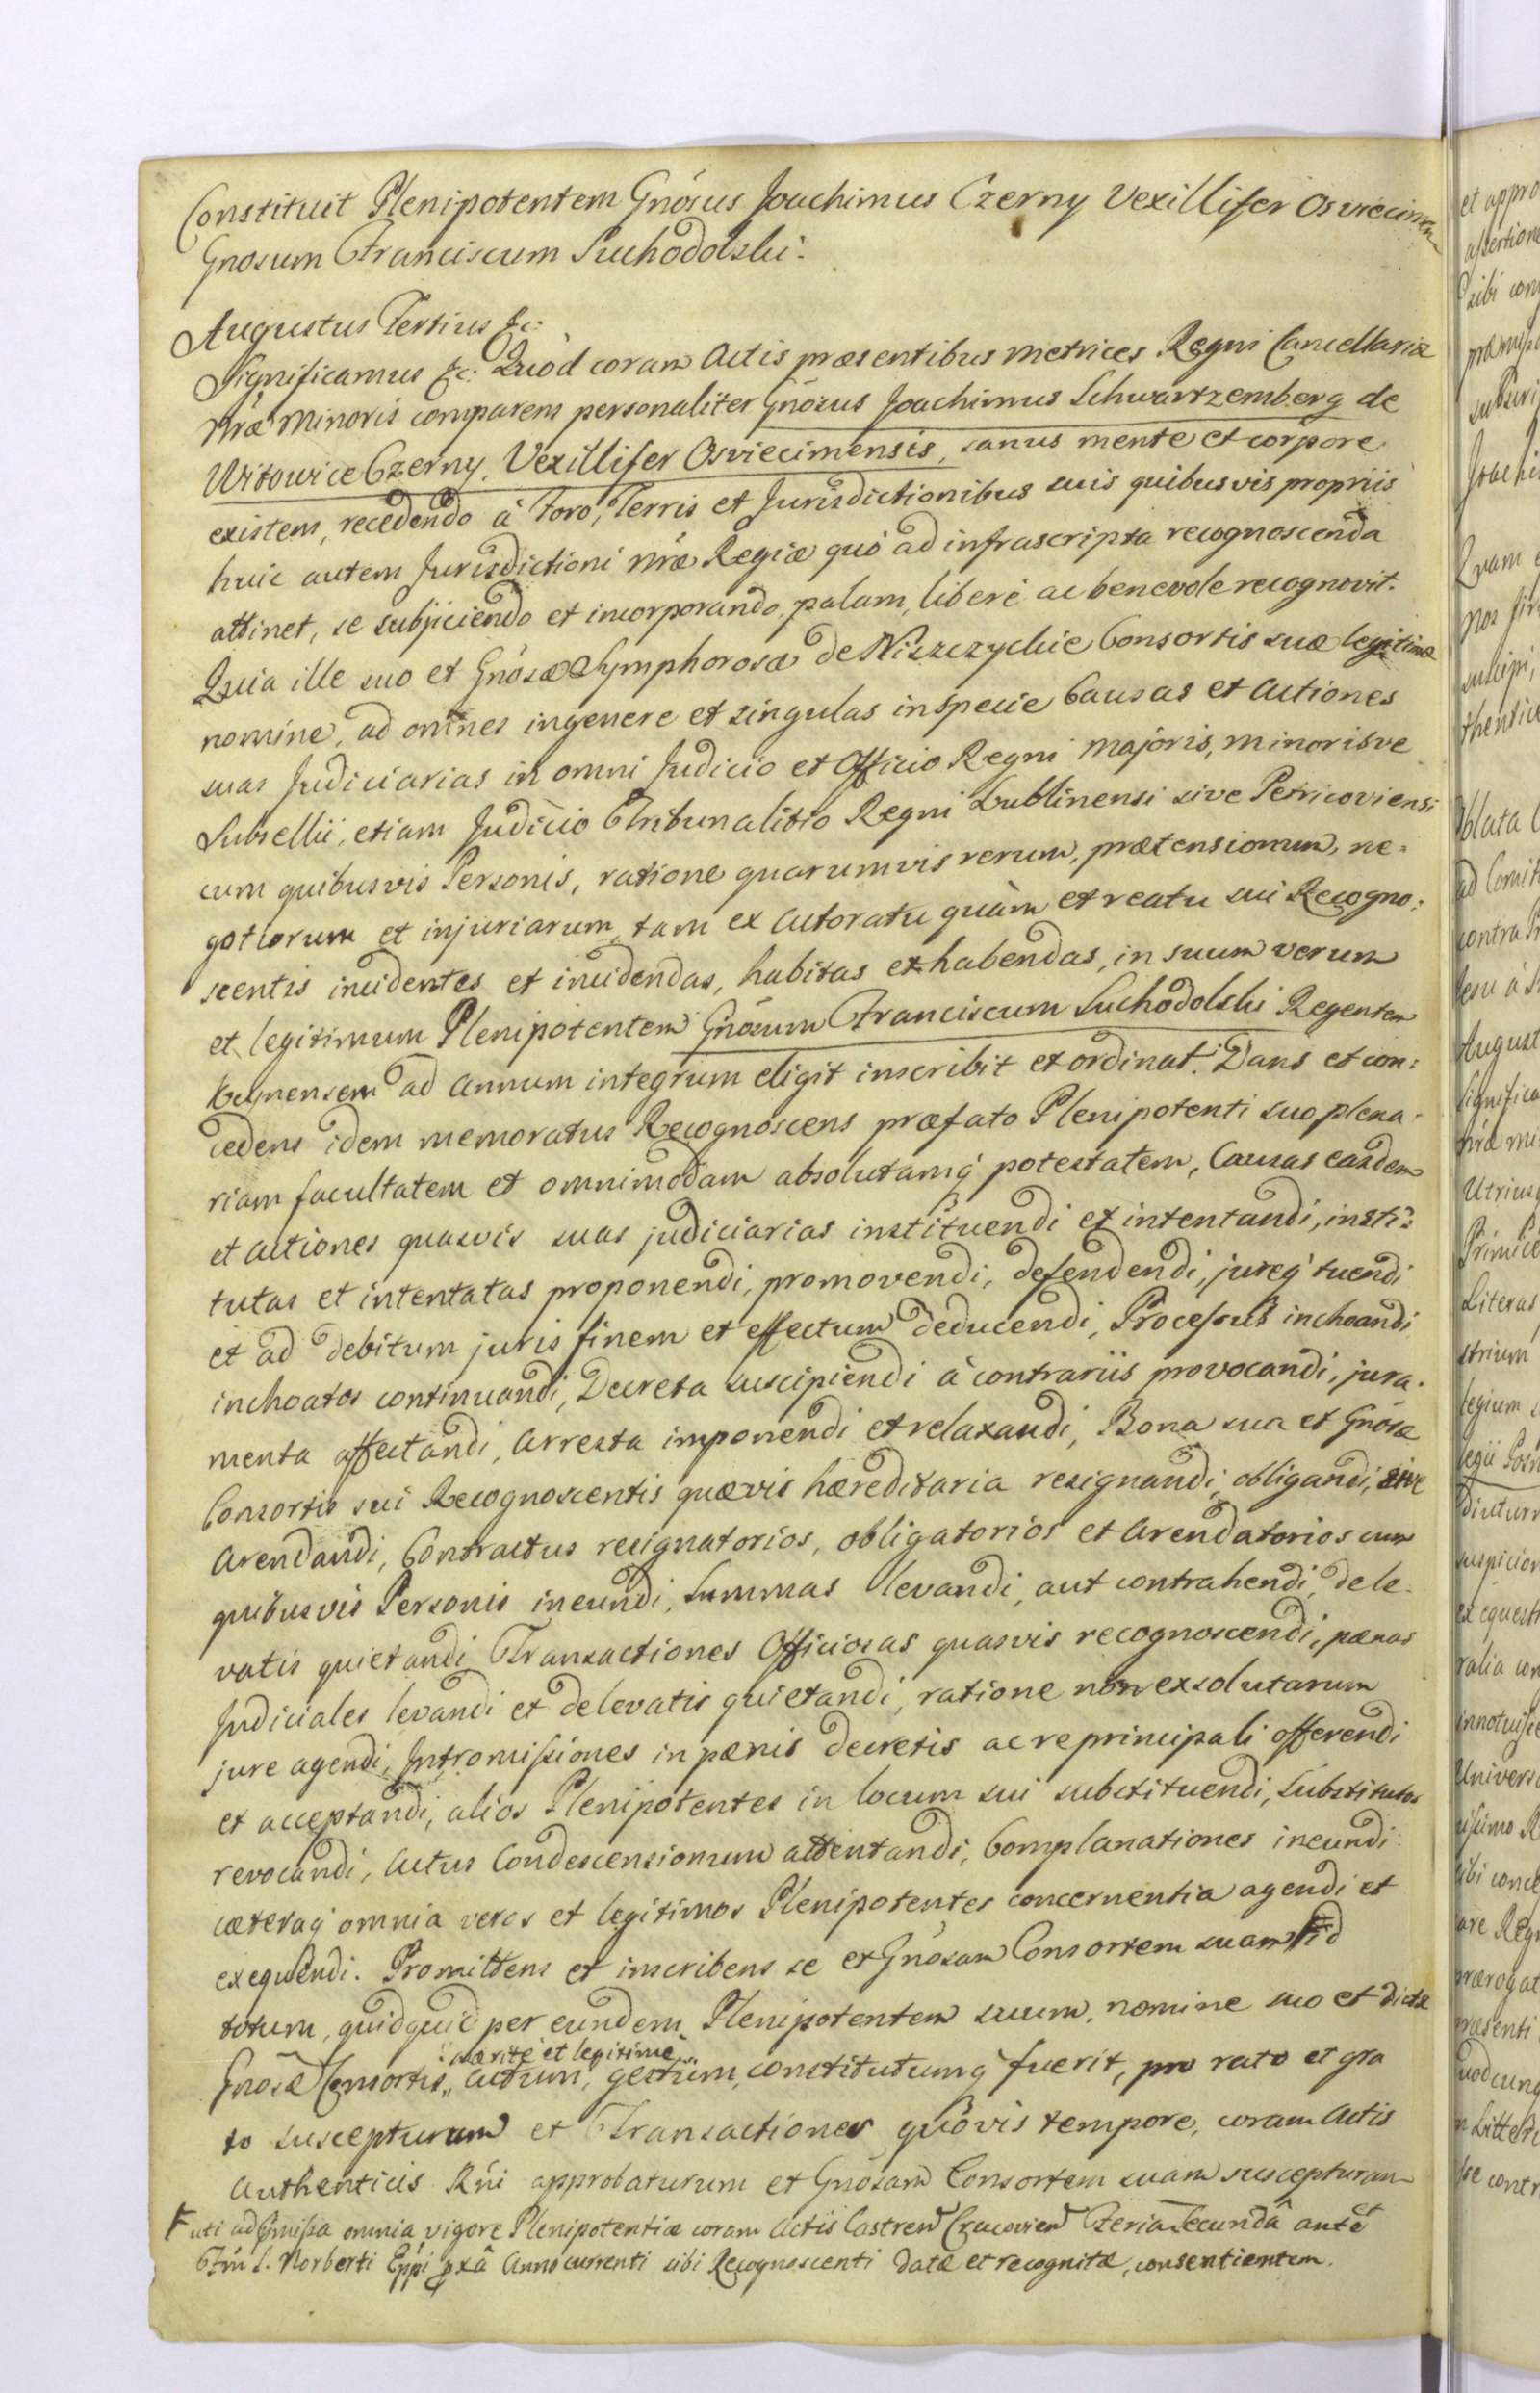 Constituit Plenipotentem Gnosus Joachimus Czerny Vexillifer Osviecimen
Gnosum Franciscum Suchodolski.
Augustus Tertius &c:
Significamus &c: Quòd coram Actis præsentibus Metrices Regni Cancellariæ
Nræ Minoris comparens personaliter Gnosus Joachimus Schwartzemberg de
Witowice Czerny, Vexillifer Osviecimensis, sanus mente et corpore
existens, recedendo à Foro, Terris et Jurisdictionibus suis quibusvis propriis
huic autem Jurisdictioni Nræ Regiæ quò ad infrascripta recognoscenda
attinet, se subjiciendo et incorporando, palam, liberè ac benevole recognovit.
Quia ille suo et Gnosæ Symphorosæ de Niszczyckie Consortis suæ legitimæ
nomine, ad omnes in genere et singulas in specie Causas et Actiones
suas Judiciarias in omni Judicio et Officio Regni majoris, minorisve
Subsellii, etiam Judicio Tribunalitio Regni Lublinensi sive Petricoviensi
cum quibusvis Personis, ratione quarumvis rerum, prætensionum, ne=
gotiorum et injuriarum, tam ex Actoratu quàm et reatu sui Recogno:
scentis incidentes et incidendas, habitas et habendas, in suum verum
et legitimum Plenipotentem Gnosum Franciscum Suchodolski Regentem
ad Annum integrum eligit inscribit et ordinat. Dans et con:
cedens idem memoratus Recognoscens præfato Plenipotenti suo plena-
riam facultatem et omnimodam absolutamq' potestatem, Causas easdem
et Actiones quasvis suas judiciarias instituendi et intentandi, insti:
tutas et intentatas proponendi, promovendi, defendendi, jureq' tuendi
et ad debitum juris finem et effectum deducendi, Processus inchoandi
inchoatos continuandi, Decreta suscipiendi à contrariis provocandi, jura-
menta affectandi, Arresta imponendi et relaxandi, Bona sua et Gnosæ
Consortis sui Recognoscentis quævis hæreditaria resignandi, obligandi, sive
Arendandi, Contractus resignatorios, obligatorios et Arendatorios cum
quibusvis Personis ineundi, Summas levandi, aut contrahendi, de le-
vatis quietandi Transactiones Officiosas quasvis recognoscendi, pænas
Judiciales levandi et de levatis quietandi, ratione non exsolutarum
jure agendi, Intromissiones in pænis decretis ac re principali offerendi
et acceptandi, alios Plenipotentes in locum sui substituendi, Substitutos
revocandi, Actus Condescensionum attentandi, Complanationes ineundi
cæteraq' omnia veros et legitimos Plenipotentes concernentia agendi et
exequendi. Promittens et inscribens se et Gnosam Consortem suam id
totum, quidquid per eundem Plenipotentem suum, nomine suo et dictæ
ritè et legitime
Gnosæ Consortis, actum, gestum, constitutumq' fuerit, pro rato et gra
to suscepturum et Transactiones quovis tempore, coram Actis
Authenticis Rni approbaturum et Gnosam Consortem suam suscepturam
uti ad omnia vigore Plenipotentiæ coram Actis Castren Cracovien Feria Secunda ante
S. Norberti Anno currenti sibi Recognoscenti datæ et recognitæ, consentientem.